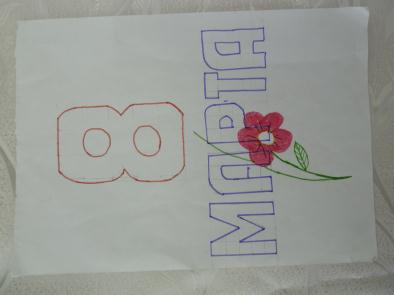 8
МАРТА